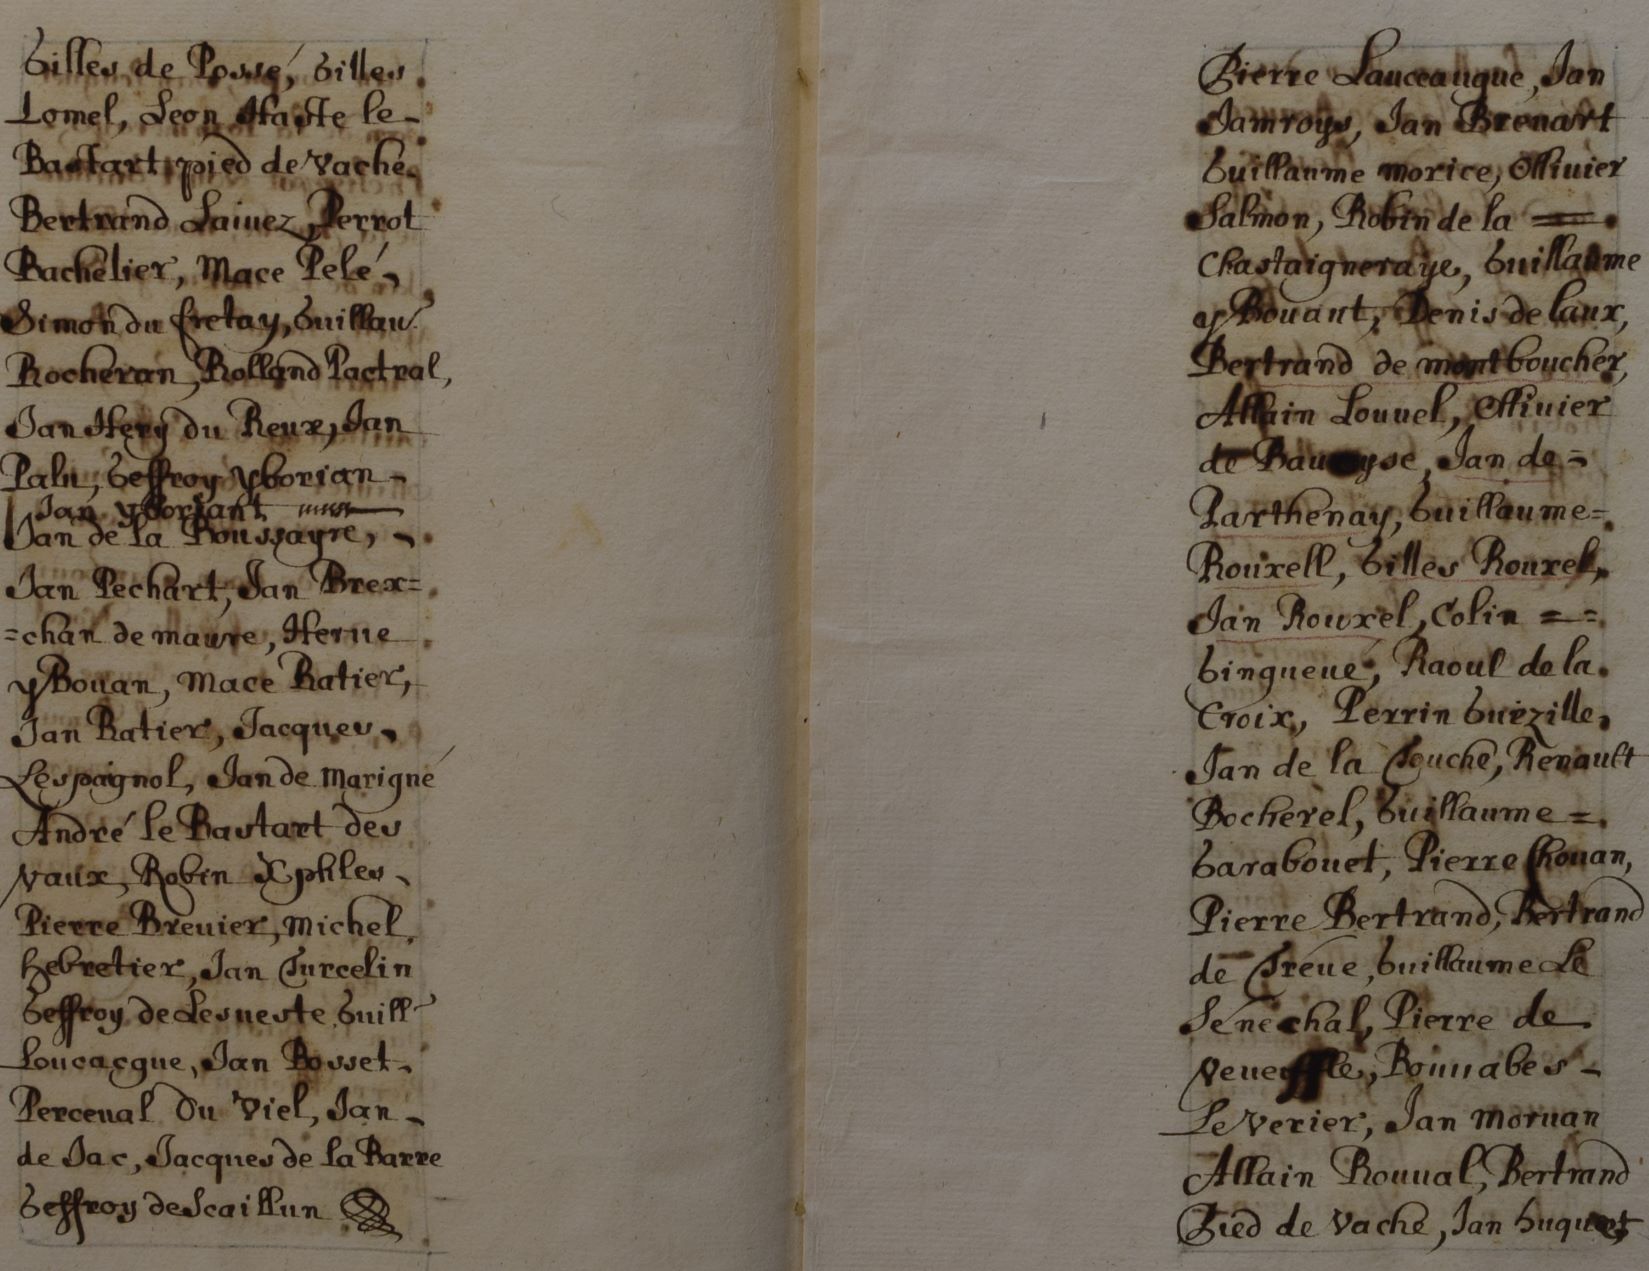 Gilles de Possé, Gilles
Lomel, Leon Haste le-
Bastart pied de Vache.
Bertrand Lainez, Perrot
Bachelier, Mace Pelé,
Simon du Cretay, Guillau.
Rocheran, Rolland Pactral,
Jan Hery du Reux, Jan
Palu, Geffroy yborian -
Jan yboriant
Jan de la Boussayre, -
Jan Pechart, Jan Brex=
=chan de maure, Herue
yBouan, Mace Ratier,
Jan Ratier, Jacques,
Lespaignol, Jan de Marigné
André le Bastart des
Vaux, Robin Xphles,
Pierre Breuier, Michel,
hebretier, Jan Turcelin
Geffroy de Lesneste Guill
Loucacgue, Jan Bosset,
Perceual du Viel, Jan -
de Jac, Jacques de la Barre
Geffroy de Scaillun
Pierre Lauceaugue, Jan
Jamroys, Jan Brenart
Guillaume Morice, Ollivier
Salmon, Robin de la =
Chastaigneraye, Guillaume
yBouant, Denis de laux,
Bertrand de montboucher,
Allain Louuel, Ollivier
de, Jan de =
Parthenay, Guillaume =
Rouxell, Gilles Rouxel,
Jan Rouxel, Colin = =
Gingueué, Raoul de la
Croix, Perrin Guezille,
Jan de la Touche, Renault
Bocherel, Guillaume =
Garabouet, Pierre Chouan,
Pierre Bertrand, Bertrand
de Treue, Guillaume Le
Senechal, Pierre de
Bonnabes -
Le Verier, Jan Moruan
Allain Rouual, Bertrand
Pied de Vache, Jan huguet